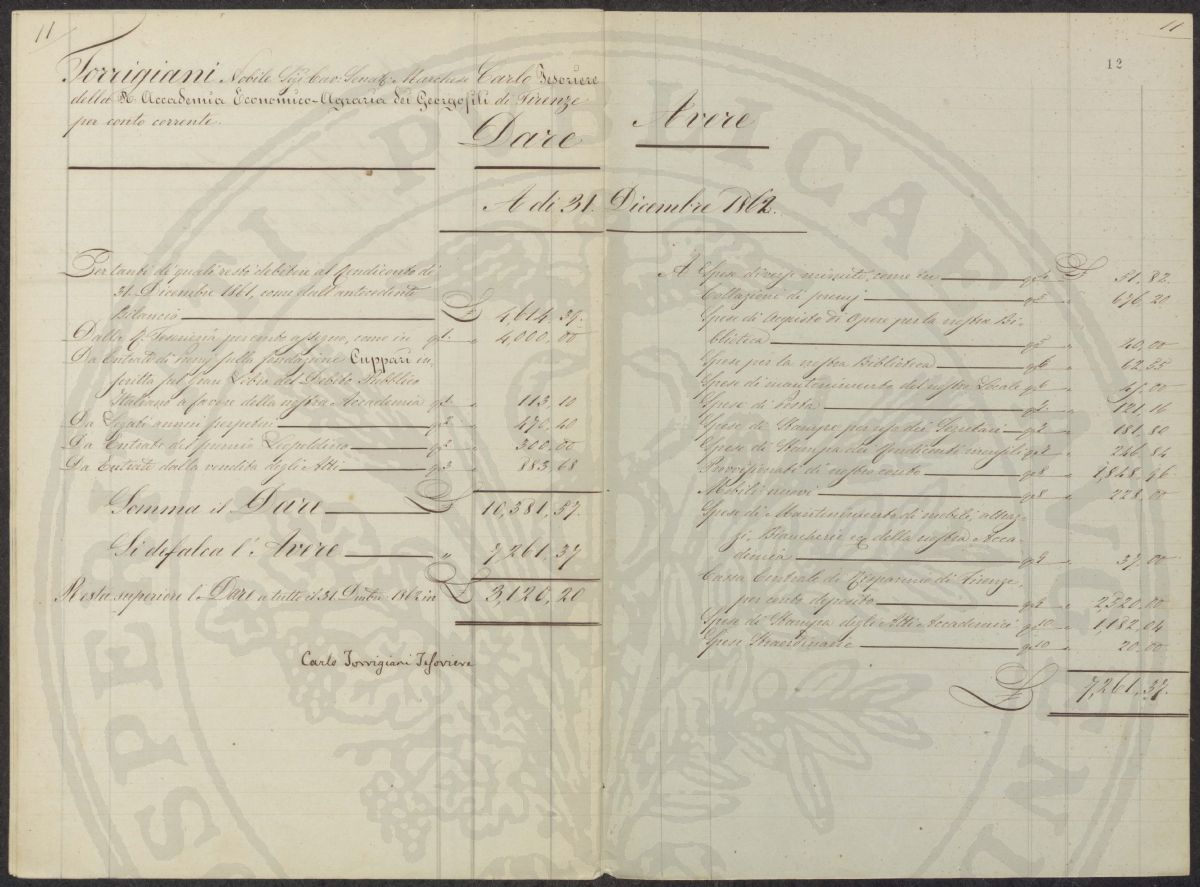 11
Torrigiani Nobile Sig. Cav. Senat. Marchese Carlo Tesoriere
della R. Accademia Economico-Agraria dei Georgofili di Firenze
per conto corrente.
Dare
A dì 31. Dicembre 1862.
Per tanti di quali restò debitore al Rendiconto di
31. Dicembre 1861, come dall'antecedente
Bilancio £ 4,614,39.
Dalla Tesoreria per conto assegno, come in 4,000,00
Da Entrate di sulla fondazione Cuppari in-
scritta sul Gran Libro del Debito Pubblico
Italiano a favore della nostra Accademia 113,10
Da Legati annui perpetui 470,40
Da Entrate del premio Leopoldino 300,00
Da Entrate dalla vendita degli Atti 883,68
Somma il Dare £ 10,381,57.
Si defalca l'Avere „ 7,261,37
Resta superiore lo Dare a tutto il 31 Dicbre 1862 in £ 3,120,20
Carlo Torrigiani Tesoriere
11
12
Avere
A Spese diverse minute, come in £ 51,82.
Collazioni di premj 676,20
Spese di Acquisto di Opere per la nostra Bi-
blioteca 40,00
Spese per la nostra Biblioteca 62,55
Spese di mantenimento del nostro Locale
Spese di Posta 121,16
Spese di Stampe per uso dei Segretari 181,80
Spese di Stampa dei Rendiconti mensili 246,84
Provvisionati di nostro conto 1,848,46
Mobili nuovi 228,00
Spese di Mantenimento di mobili, attrez-
zi, Biancherie della nostra Acca-
demia 37,00
Cassa Centrale di Risparmio di Firenze,
per conto deposito 2,520,00
Spese di Stampa degli Atti Accademici 1,182,04
Spese Straordinarie 20,00
£ 7,261,37.